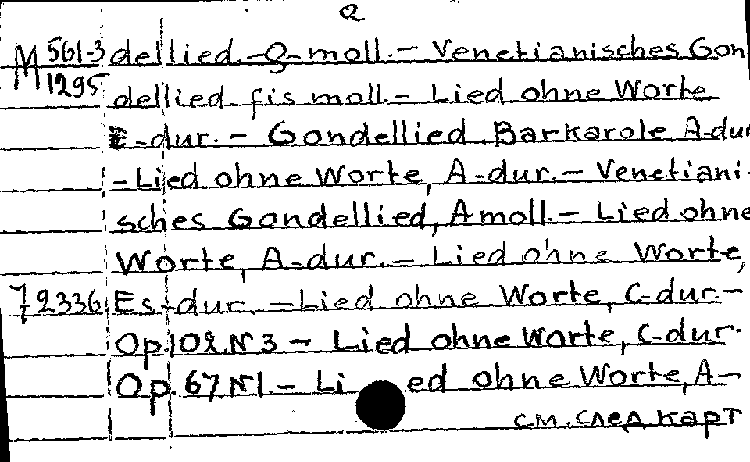 2
М 561-3 dellied.-g-moll.- Venetianisches Gon
1295 dellied fis moll.- Lied ohne Worte
E-dur.- Gondellied Barkarole A-dur
-Lied ohne Worte, A-dur.- Venetiani-
sches Gondellied, A moll.- Lied ohne
Worte, A-dur.- Lied ohne Worte,
72336 Es-dur.-Lied ohne Worte, C-dur.-
Op.102.N3 - Lied ohne Worte, C-dur.
Op.67 N1.- Lied ohne Worte, A-
см. след карт